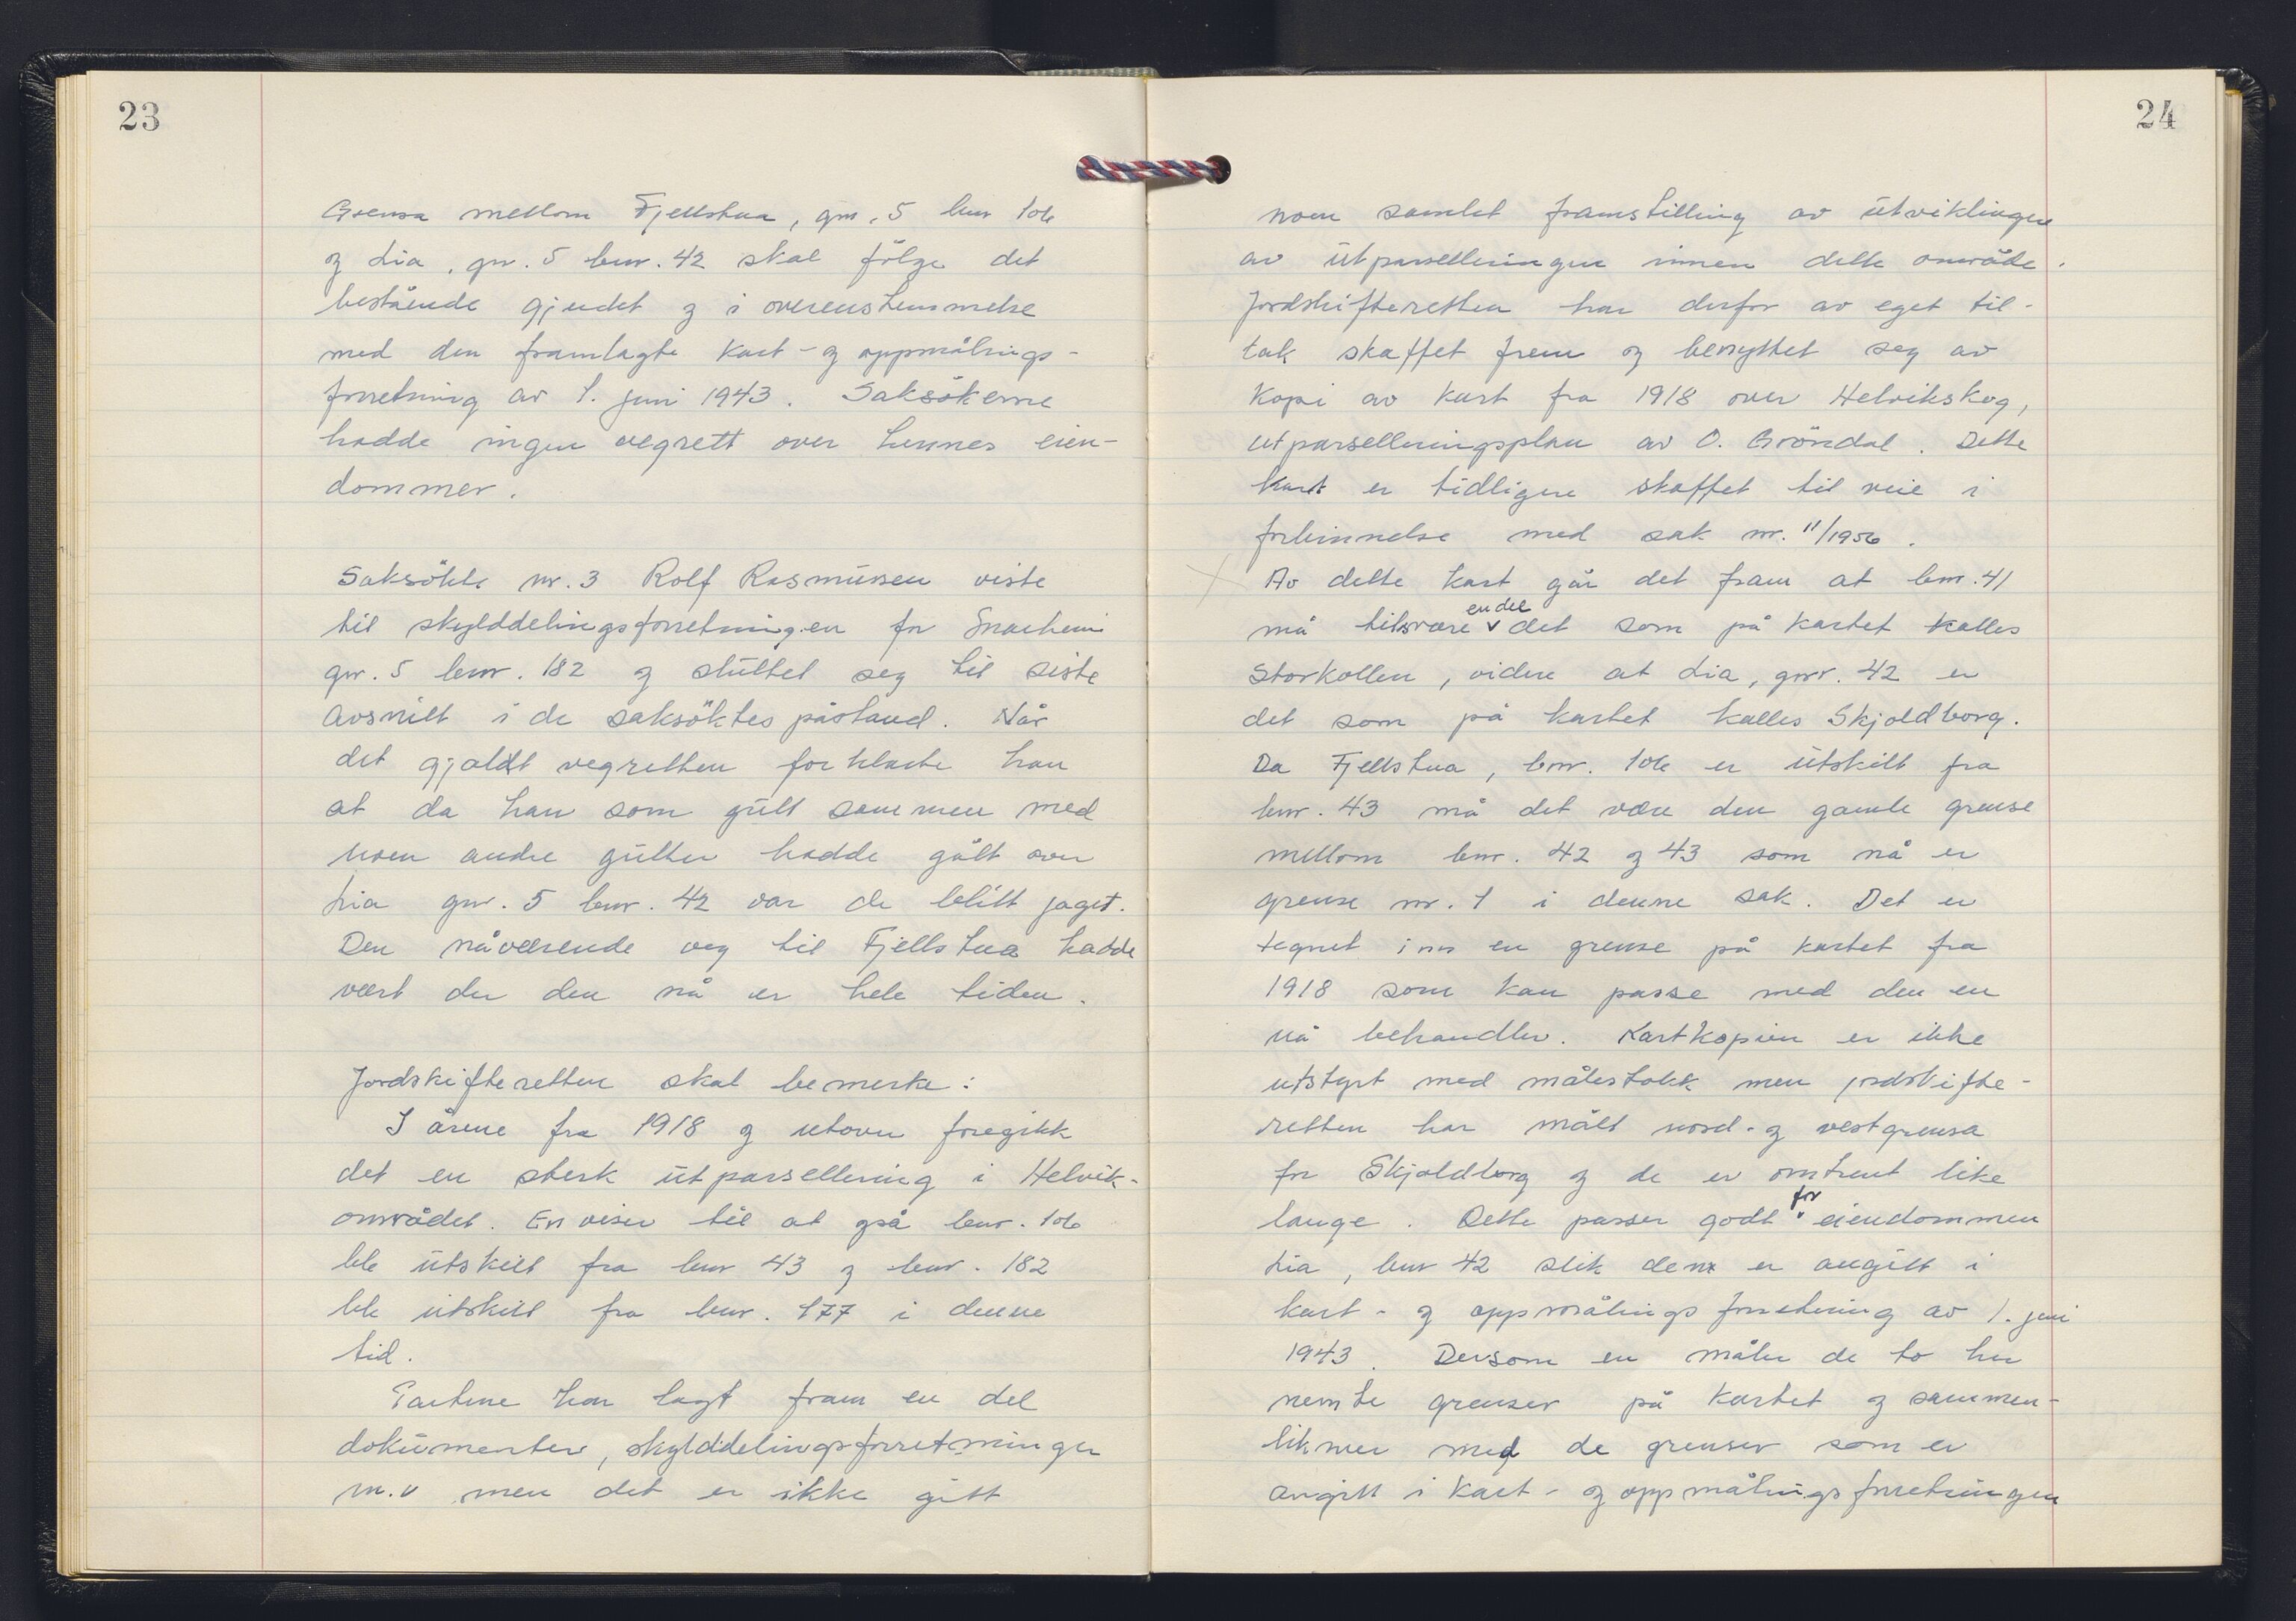 23
Grensa mellom Fjellstua, gnr. 5 bnr 106
og Lia, gnr. 5 bnr. 42 skal følge det
bestående gjerdet og i overensstemmelse
med den framlagte kart- og oppmålings-
forretning av 1. juni 1943. Saksøkerne
hadde ingen vegrett over hennes eien-
dommer.
Saksøkte nr. 3 Rolf Rasmussen viste
til skylddelingsforretningen for Snarheim
gnr. 5 bnr. 182 og støttet seg til siste
avsnitt i de saksøktes påstand. Når
det gjaldt vegretten forklarte han
at da han som gutt sammen med
noen andre gutter hadde gått over
Lia gnr. 5 bnr. 42 var de blitt jaget.
Den nåværende veg til Fjellstua hadde
vært der den nå er hele tiden.
Jordskifteretten skal bemerke:
I årene fra 1918 og utover foregikk
det en sterk utparsellering i Helvik-
området. En viser til at også bnr. 106
ble utskilt fra bnr 43 og bnr. 182
ble utskilt fra bnr. 177 i denne
tid.
Partene har lagt fram en del
dokumenter, skylddelingsforretninger
m.v men det er ikke gitt
24
noen samlet framstilling av utviklingen
av utparselleringen innen dette område.
Jordskifteretten har derfor av eget til-
tak skaffet frem og benyttet seg av
kopi av kart fra 1918 over Helvikskog,
utparselleringsplan av O. Grøndal. Dette
kart er tidligere skaffet til veie i
forbinnelse med sak nr. 11/1956.
Av dette kart går det fram at bnr. 41
må tilsvare en del det som på kartet kalles
Storkollen, videre at Lia, gnr. 42 er
det som på kartet kalles Skjoldborg.
Da Fjellstua, bnr. 106 er utskilt fra
bnr. 43 må det være den gamle grense
mellom bnr. 42 og 43 som nå er
grense nr. 1 i denne sak. Det er
tegnet inn en grense på kartet fra
1918 som kan passe med den en
nå behandler. Kartkopien er ikke
utstyrt med målestokk men jordskifte-
retten har målt nord- og vestgrensa
for Skjoldborg og de er omtrent like
lange. Dette passer godt for eiendommen
Lia, bnr 42 slik den er angitt i
kart- og oppmålingsforretning av 1. juni
1943. Dersom en måler de to her
nemte grenser på kartet og sammen-
likner med de grenser som er
angitt i kart- og oppmålingsforretningen